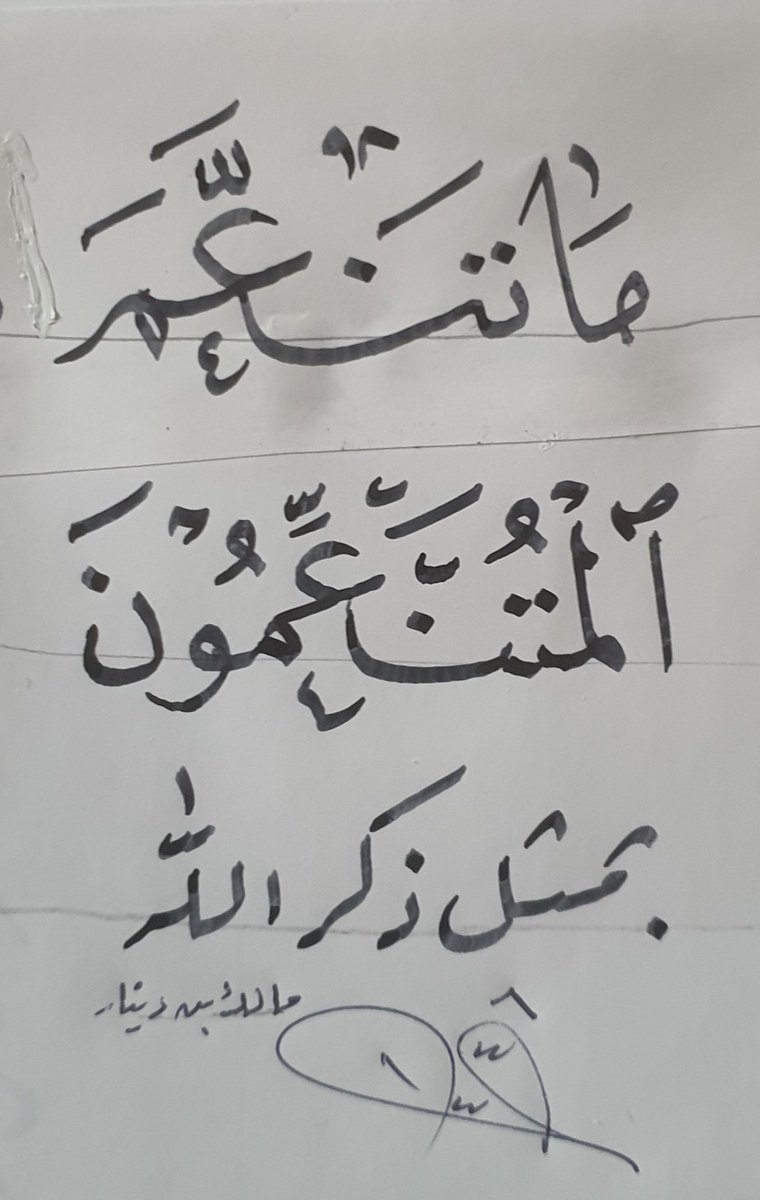 مَا تَنَعَّمَ
ٱلْمُتَنَعِّمُونَ
بمثل ذكر اللّٰه
مالك بن دينار